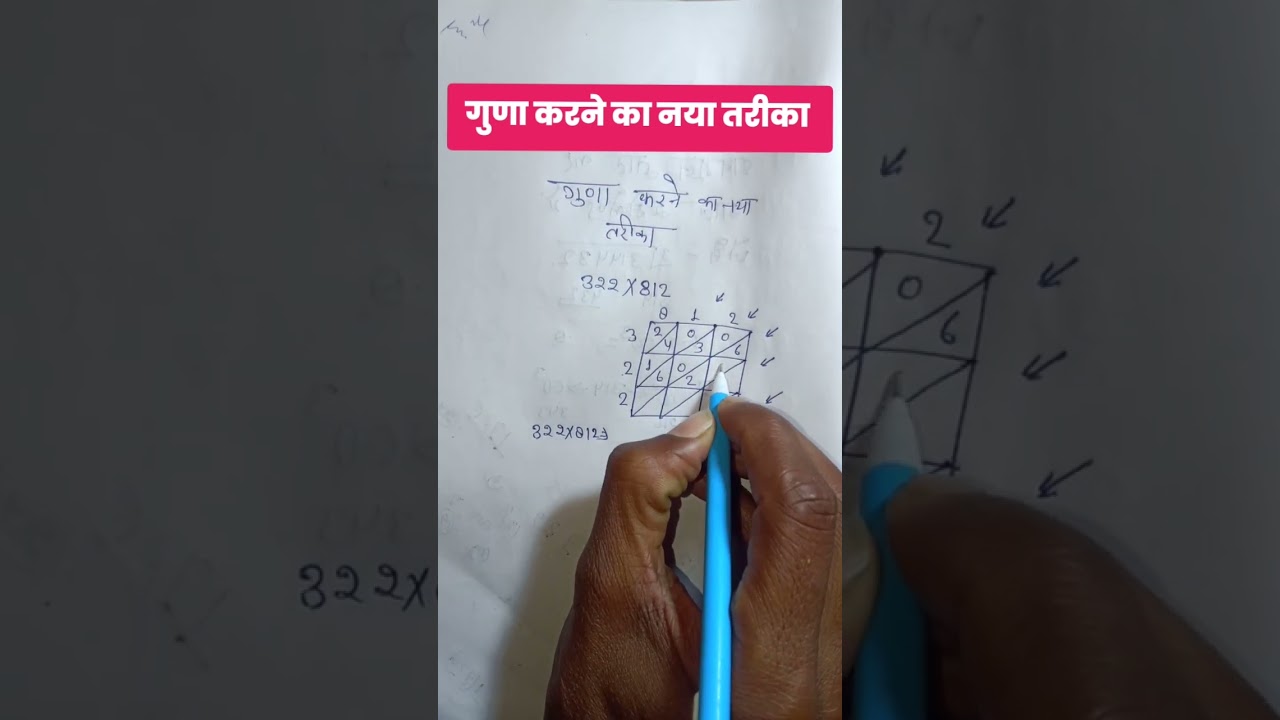 गुणा करने का नया तरीका
गुणा करने का नया
तरीका
322×812
8 1 2
3 2/4 0/3 0/6
2 1/6 0/2
2
322×812=